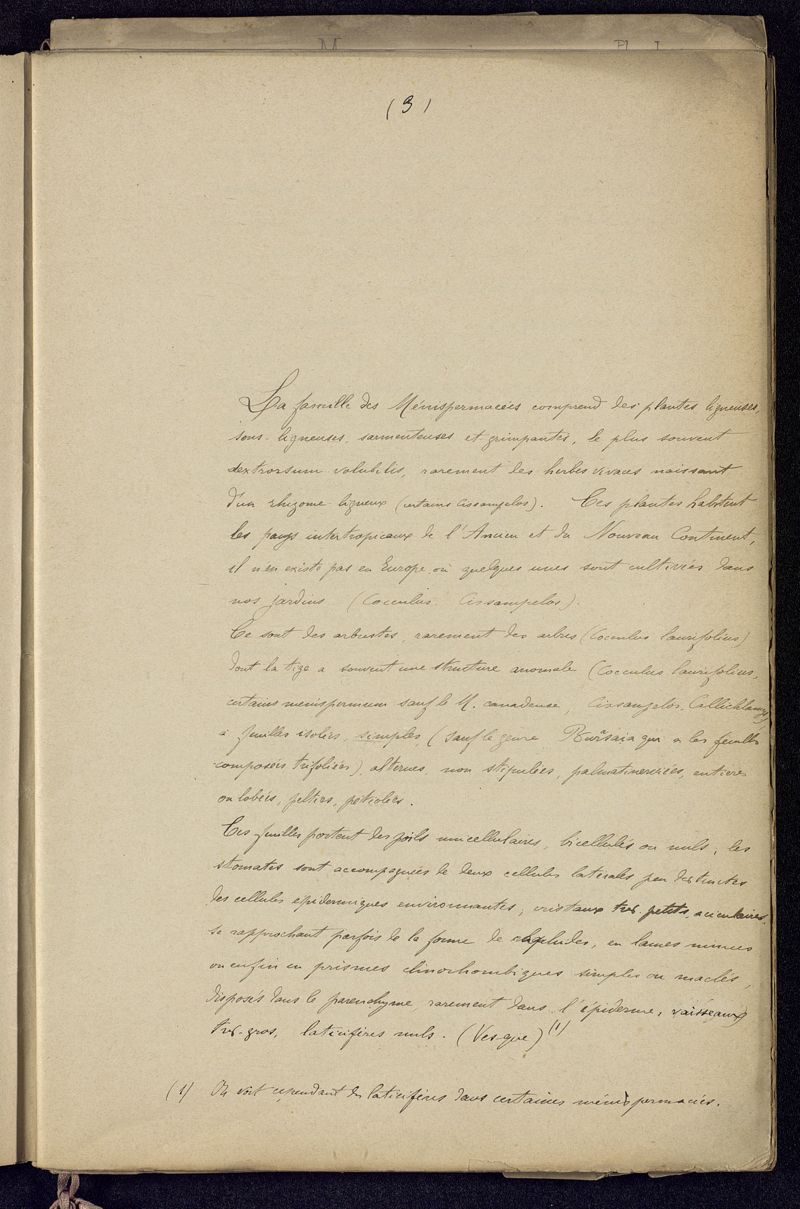 (3)
La famille des Ménispermacées comprend des plantes ligneuses,
sous-ligneuses, sarmenteuses et grimpantes, le plus souvent
dextrorsum volubiles, rarement des herbes vivaces naissant
d'un rhizome ligneux (certains Cissampelos). Ces plantes habitent
les pays intertropicaux de l'Ancien et du Nouveau Continent,
il n'en existe pas en Europe où quelques unes sont cultivées dans
nos jardins (Cocculus. Cissampelos).
Ce sont des arbustes, rarement des arbres (Cocculus laurifolius)
dont la tige a souvent une structure anomale (Cocculus laurifolius,
certains menispermum sauf le M. canadense, Cissampelos, Callichlamys)
à feuilles isolées, simples (sauf le genre Burasaia qui a les feuilles
composées trifoliées), alternes, non stipulées, palmatinerviées, entières
ou lobées, peltées, pétiolées.
Ces feuilles portent des poils unicellulaires, bicellulés ou nuls; les
stomates sont accompagnées de deux cellules latérales peu distinctes
des cellules épidermiques environnantes, cristaux très petits, aciculaires
se rapprochant parfois de la forme de raphides, en lames minces
ou enfin en prismes clinorhombiques simples ou maclés,
disposés dans le parenchyme, rarement dans l'épiderme, vaisseaux
très-gros, laticifères nuls. (Vesque) (1)
(1) On voit cependant des laticifères dans certaines ménispermacées.